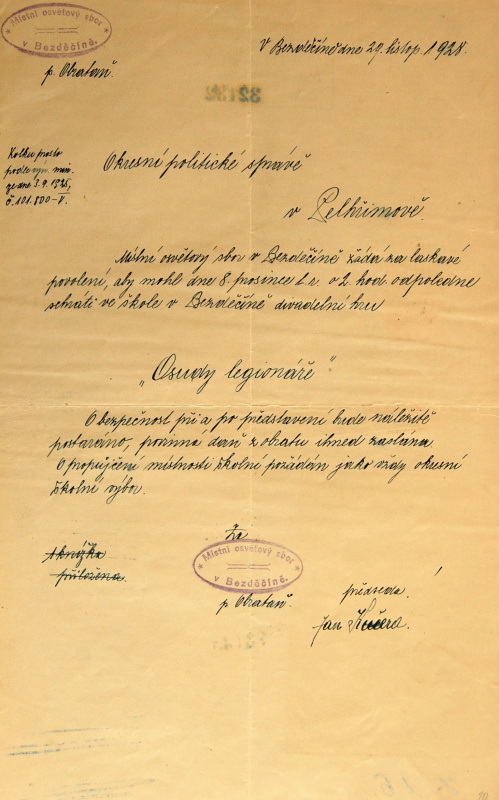 Místní osvětový sbor
v Bezděčíně.
p. Obrataň.
V Bezděčíně dne 29. listop. 1928.
Kolku prosto
podle výn. min.
ze dne 3.9.1925,
č. 101.800-V.
Okresní politické správě
v Pelhřimově.
Místní osvětový sbor v Bezděčíně žádá za laskavé
povolení, aby mohl dne 8. prosince t. r. o 2. hod. odpoledne
sehráti ve škole v Bezděčíně divadelní hru
„Osudy legionáře"
O bezpečnost při a po představení bude náležitě
postaráno, povinná daň z obratu ihned zaslána.
O propůjčení místnosti školní požádán jako vždy okresní
školní výbor.
1 knížka
přiložena.
Za
Místní osvětový sbor
v Bezděčíně.
p. Obrataň.
předseda:
Jan Kučera.